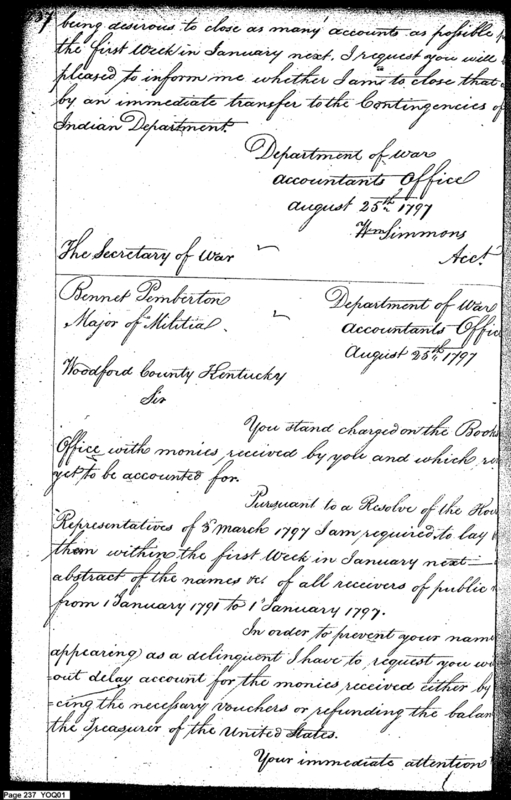 37
being desirous to close as many accounts as possible
the first Week in January next. I request you will
pleased to inform me whether I am to close that
by an immediate transfer to the Contingencies of
Indian Department.
Department of War
accountants Office
august 25th 1797
Wm Simmons
Acct
The Secretary of War
Bennet Pemberton
Major of Militia.
Department of War
accountants Office
August 25th 1797
Woodford County Kentucky
Sir
You stand charged on the Books
Office with monies received by you and which
yet to be accounted for.
Pursuant to a Resolve of the Hou
Representatives of 3d march 1797 I am required to lay
them within the first Week in January next
abstract of the names &c. of all receivers of public
from 1 January 1791 to 1 January 1797.
In order to prevent your name
appearing as a delinquent I have to request you wi
=out delay account for the monies received either by
=cing the necessary vouchers or refunding the balan
the Treasurer of the United States.
Your immediate attention
Page 237 YOQ01